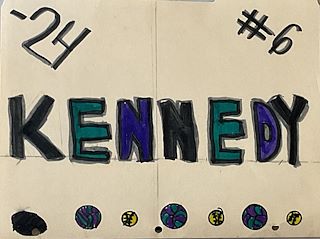 -24 #6
KENNEDY